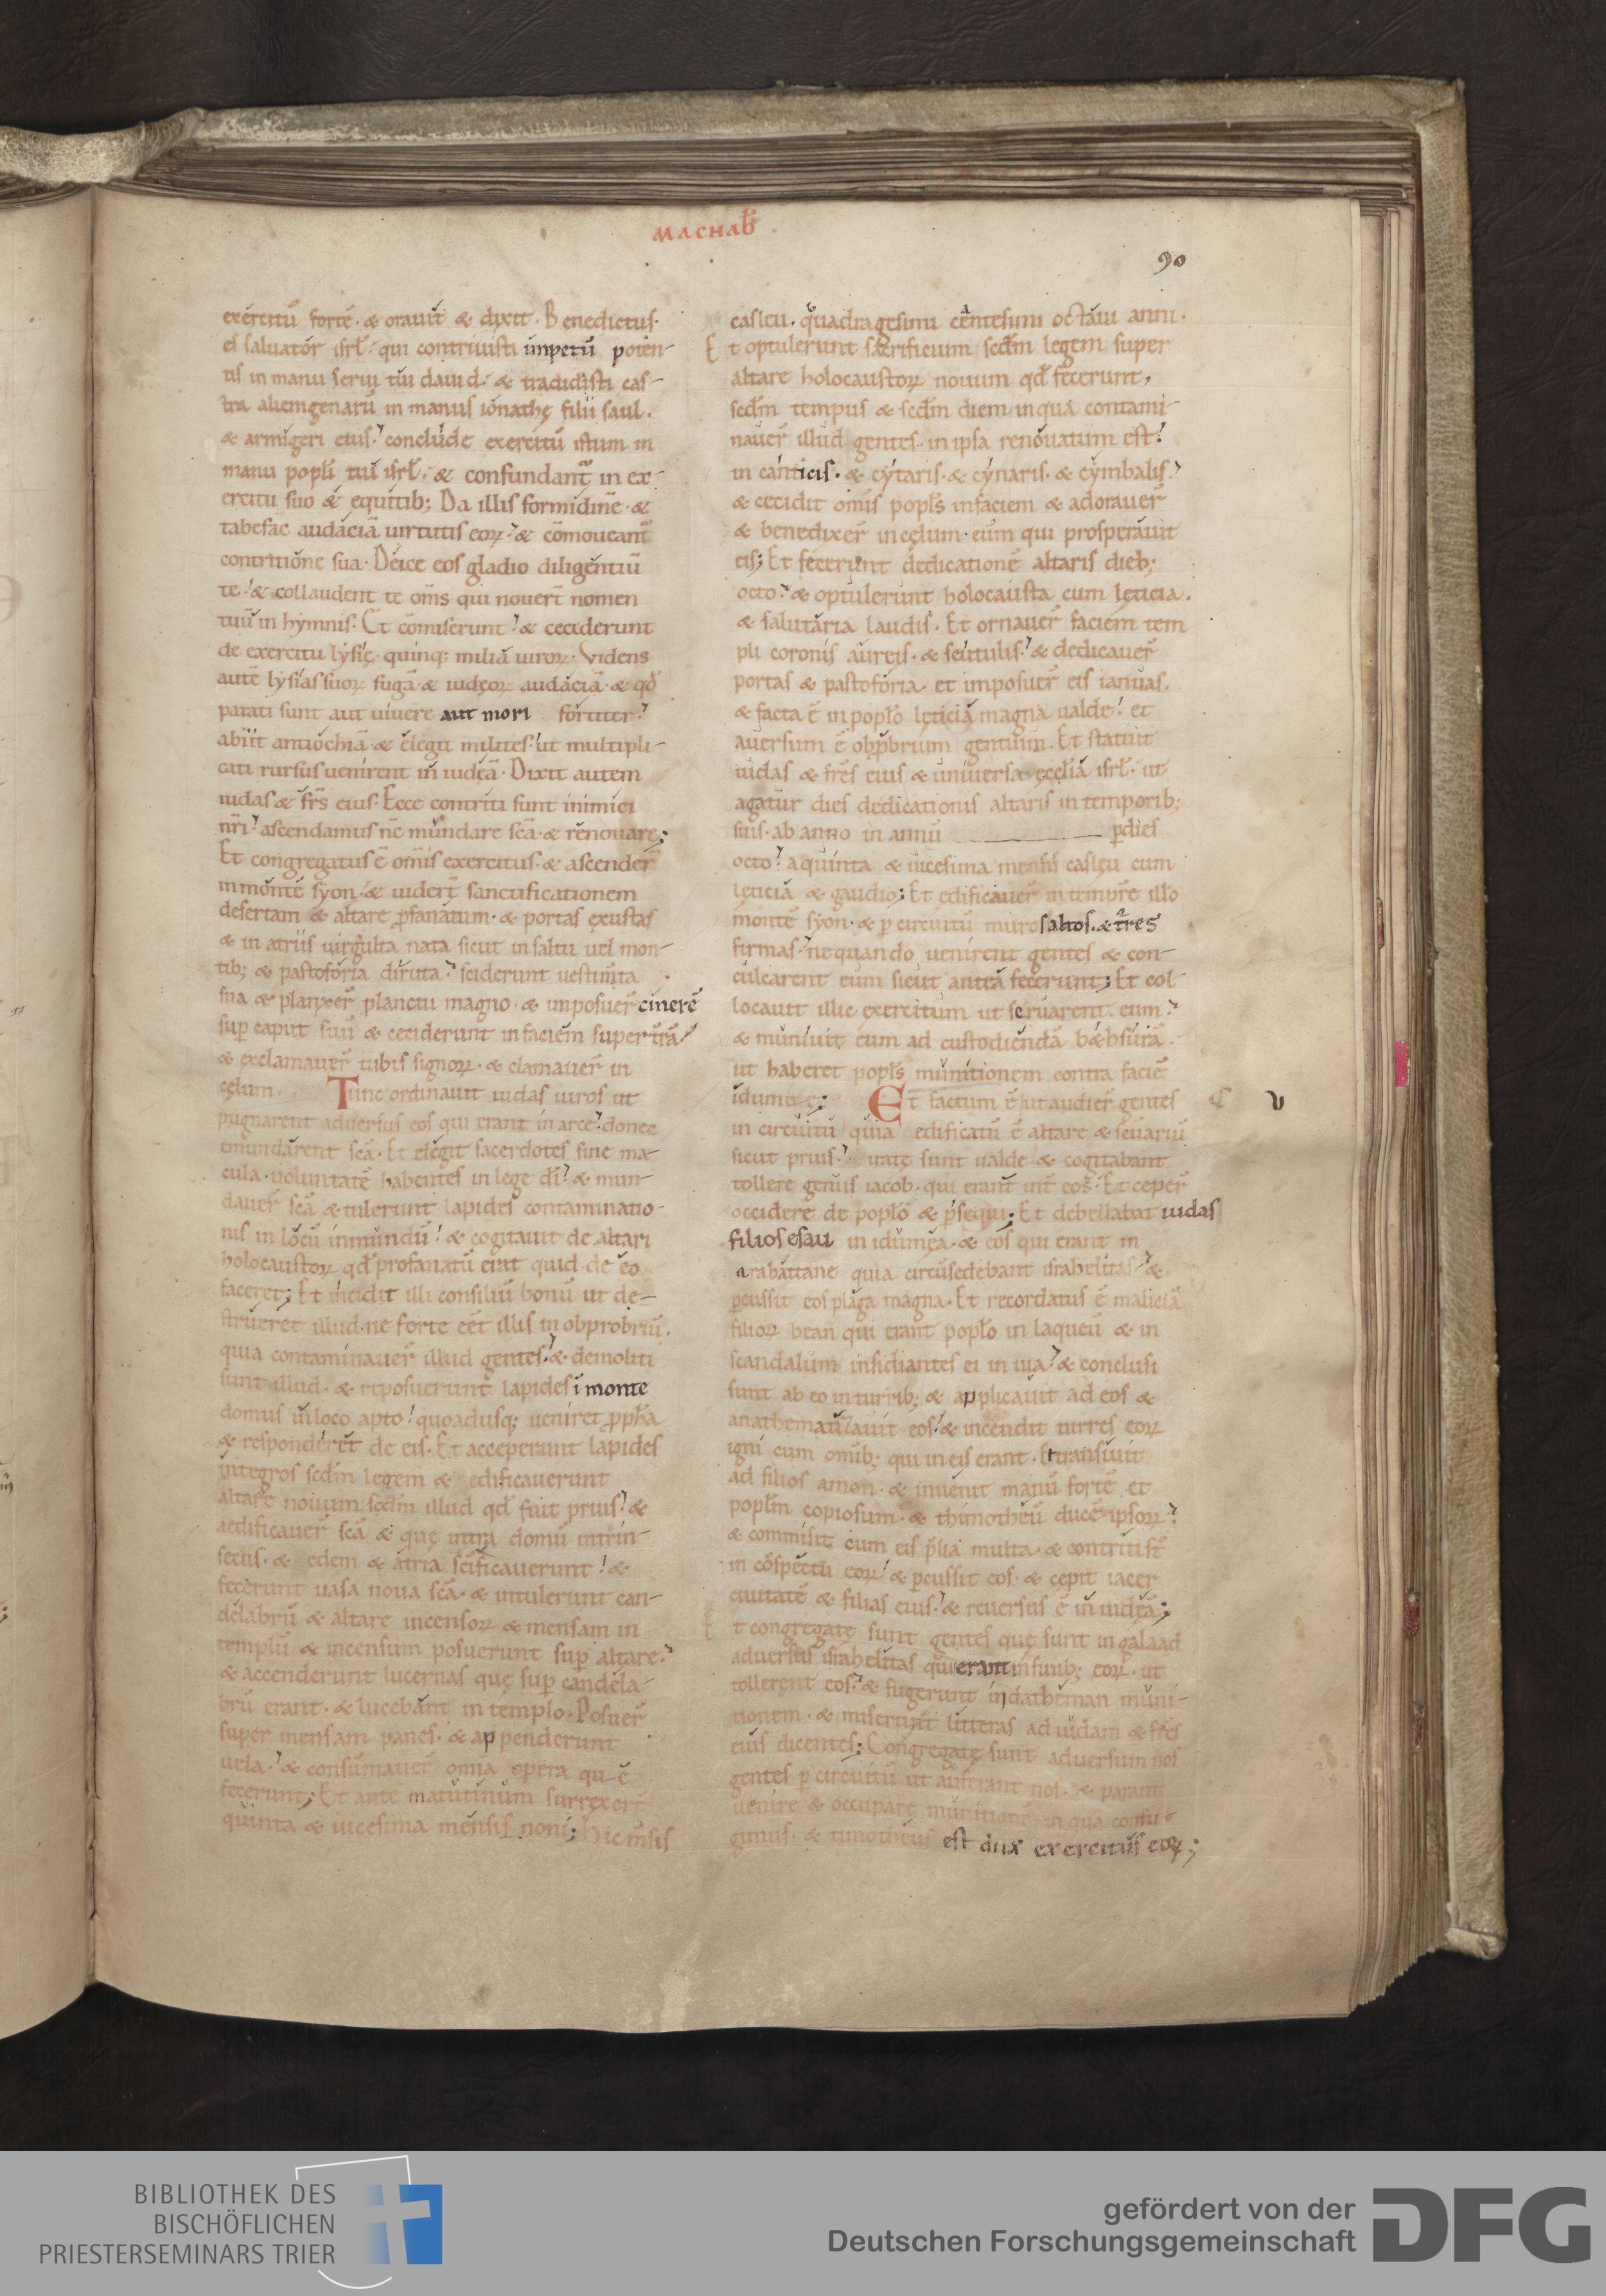 MACHAB̄
90
exercitū fortē. & orauit & dixit. Benedictus.
es saluator isrł. qui contriuisti impetū poten-
tis in manu serui tui dauid. & tradidisti cas-
tra alienigenarū in manus ionathę filii saul.
& armigeri eius. conclude exercitū istum in
manu popłi tui isrł. & confundant̄ in ex-
ercitu suo & equitib; Da illis formidinē. &
tabefac audaciā uirtutis eoꝝ. & cōmoueant̄
contritione sua. Deice eos gladio diligentiū
te. & collaudent te om̄s qui nouert̄ nomen
tuū in hymnis. Et cōmiserunt. & ceciderunt
de exercitu lysię. quinq; milia uiroꝝ. Videns
autē lysias suoꝝ fugā. & iudeoꝝ audaciā. & qđ
parati sunt aut uiuere aut mori fortiter.
abiit antiochiā & elegit milites. ut multipli-
cati rursus uenirent in iudeā. Dixit autem
iudas & fr̄s eius. Ecce contriti sunt inimici
nr̄i. ascendamus nc̄ mundare scā. & renouare;
Et congregatus ē omīs exercitus. & ascender̄
in montē syon. & uidert̄ sanctificationem
desertam & altare ꝓfanatum. & portas exustas
& in atriis uirgulta nata sicut in saltu uel mon-
tib; & pastoforia diruta. sciderunt uestim̄ta
sua & planxer̄ planctu magno. & imposuer̄ cinerē
sup̄ caput suū & ceciderunt in faciem super trā.
& exclamauer̄ tubis signoꝝ. & clamauer̄ in
cęlum. Tunc ordinauit iudas uiros ut
pugnarent aduersus eos qui erant in arce. donec
emundarent scā. Et elegit sacerdotes sine ma-
cula. uoluntatē habentes in lege dī. & mun-
dauer̄ scā & tulerunt lapides contaminatio-
nis in locū inmundū. & cogitauit de altari
holocaustoꝝ qđ profanatū erat quid de eo
faceret; Et incidit illi consiliū bonū ut de-
strueret illud. ne forte eēt illis in obprobriū.
quia contaminauer̄ illud gentes. & demoliti
sunt illud. & reposuerunt lapides ī monte
domus in loco apto. quoadusq; ueniret ꝓpħa
& responderet de eis. Et acceperunt lapides
integros scđm legem & edificauerunt
altare nouum scđm illud qđ fuit prius. &
aedificauer̄ scā & quę intra domū intrin-
secus. & edem & atria sc̄ificauerunt. &
fecerunt uasa noua scā. & intulerunt can-
delabrū & altare incensoꝝ & mensam in
templū & incensum posuerunt sup̄ altare.
& accenderunt lucernas quę sup̄ candela-
brū erant. & lucebant in templo. Posuer̄
super mensam panes. & appenderunt
uela. & consūmauer̄ omīa opera quę
fecerunt; Et ante matutinum surrexer̄
quinta & uicesima mensis noni; hic m̄sis
casleu. quadragesimi centesimi octaui anni.
Et optulerunt sacrificium scđm legem super
altare holocaustoꝝ nouum qđ fecerunt,
scđm tempus & scđm diem in qua contami-
nauer̄ illud gentes. in ipsa renouatum est.
in canticis. & cytaris. & cynaris. & cymbalis.
& cecidit om̄is popłs in faciem & adorauer̄
& benedixer̄ in cęlum. eum qui prosperauit
eis; Et fecerunt dedicationē altaris dieb;
octo. & optulerunt holocausta cum lęticia.
& salutaria laudis. Et ornauer̄ faciem tem
pli coronis aureis. & scutulis. & dedicauer̄
portas & pastoforia. et imposuer̄ eis ianuas.
& facta ē in popło lęticia magna ualde. et
auersum ē obꝓbrium gentium. Et statuit
iudas & fr̄es eius & uniuersa ęcclia isrł. ut
agatur dies dedicationis altaris in temporib;
suis. ab anno in annū p̄ dies
octo. a quinta & uicesima mensis caslęu cum
lęticia & gaudio; Et edificauer̄ in tempr̄e illo
montē syon. & p̄ circuitū muros altos. & tr̄res
firmas. nequando uenirent gentes & con-
culcarent eum sicut antea fecerunt; Et col-
locauit illic exercitum ut seruarent eum.
& muniuit eum ad custodiendā bæhsurā.
ut haberet popłs munitionem contra faciē
idumeę; Et factum ē ut audier̄ gentes
V
in circuitū quia edificatū ē altare & sc̄uariū
sicut prius. iratę sunt ualde & cogitabant
tollere genus iacob. qui erant int̄ eos. Et ceper̄
occidere de popło & p̄sequi; Et debellabat iudas
filios esau in idumęa. & eos qui erant in
arabattane quia circūsedebant israhelitas. &
p̄cussit eos plaga magna. Et recordatus ē maliciā
filioꝝ bean qui erant popło in laqueū & in
scandalum insidiantes ei in uia. & conclusi
sunt ab eo in turrib; & applicauit ad eos &
anathematizauit eos. & incendit turres eoꝝ
igni cum omīb; qui in eis erant. Et transiuit
ad filios amon. & inuenit manū fortē et
popłm copiosum. & thimotheū ducē ipsoꝝ.
& commisit cum eis p̄lia multa. & contriti st̄
in cōspectu eoꝝ. & p̄cussit eos. & cepit iazer
ciuitatē & filias eius. & reuersus ē in iudęā;
Et congregatę sunt gentes quę sunt in galaad
aduersus israhelitas qui erant in finib; eoꝝ. ut
tollerent eos. & fugerunt in datheman muni-
tionem. & miserunt litteras ad iudam & fr̄es
eius dicentes; Congregatę sunt aduersum nos
gentes p̄ circuitū ut auferant nos. & parant
uenire & occupare munitionē in quā confu-
gimus. & timotheus est dux exercitus eoꝝ;
BIBLIOTHEK DES
BISCHÖFLICHEN
PRIESTERSEMINARS TRIER
gefördert von der
Deutschen Forschungsgemeinschaft
DFG